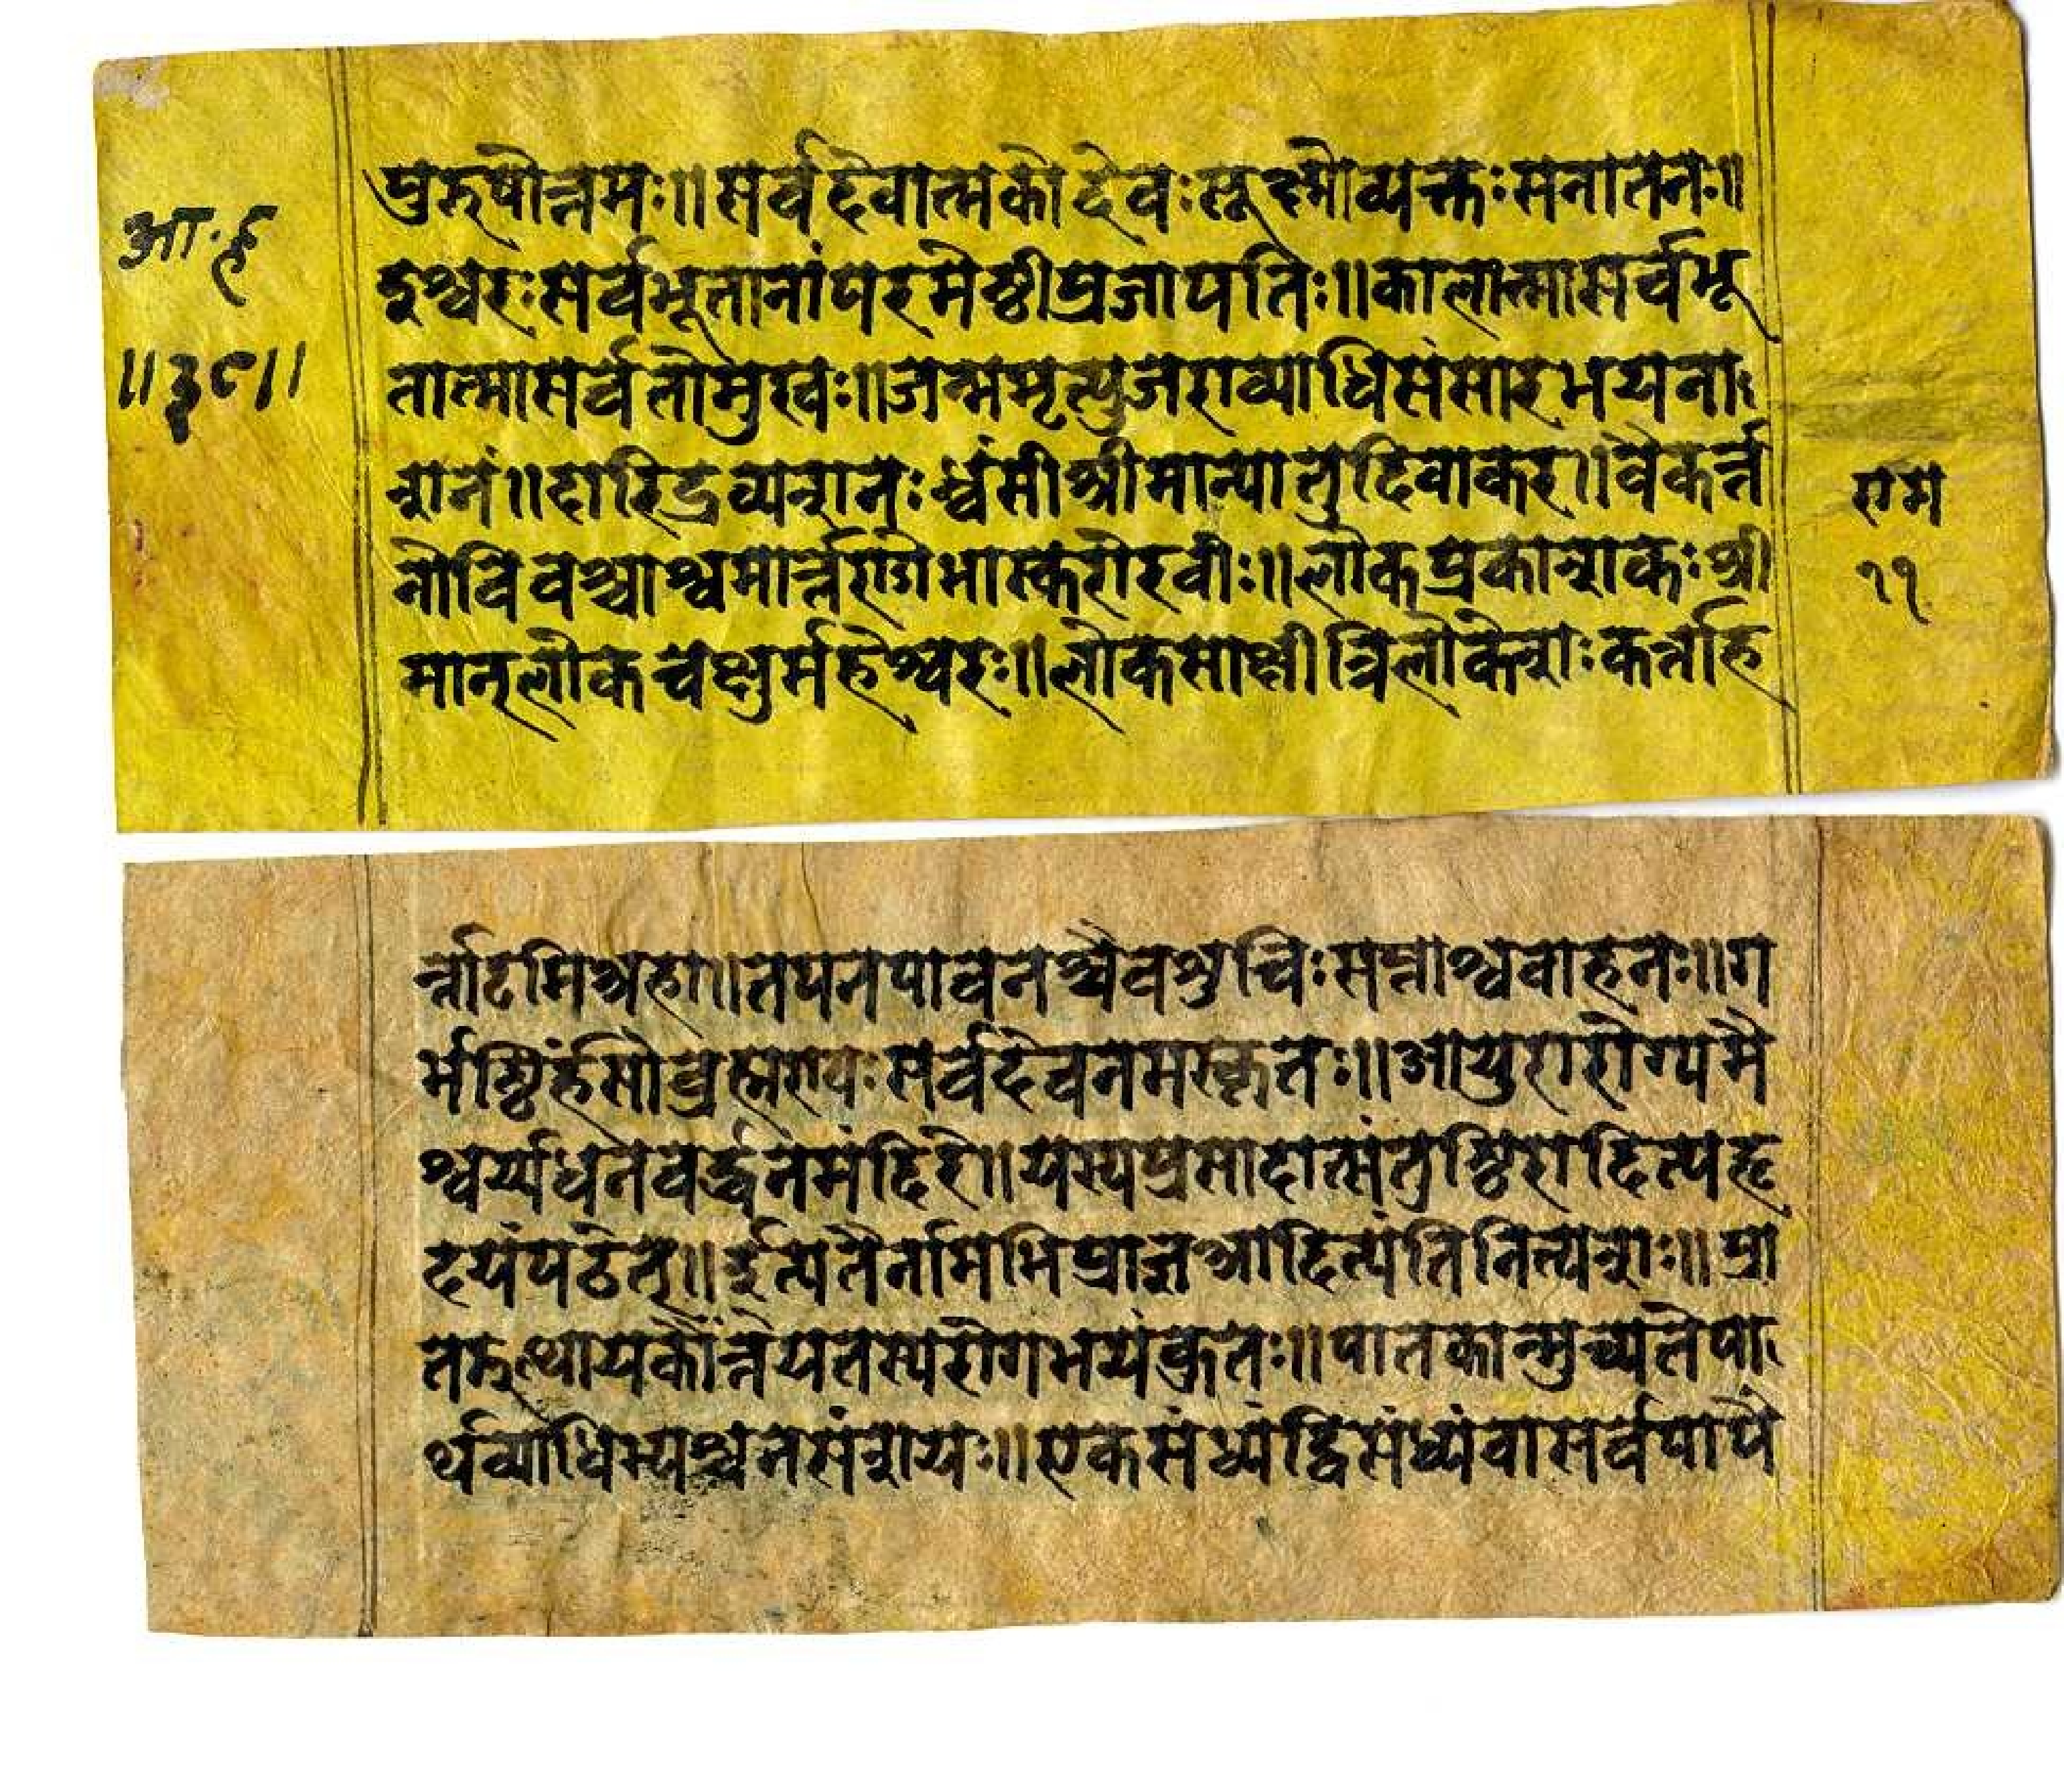 आ·हृ
॥३९॥
पुरुषोत्तमः॥सर्वदेवात्मकोदेवःसूक्ष्मोव्यक्तःसनातनः॥
इश्वरःसर्वभूतानांपरमेष्ठीप्रजापतिः॥कालात्मासर्वभू
तात्मासर्वतोमुखः॥जन्ममृत्युजराव्याधिसंसारभयना
शनं॥दारिद्रव्यशनःध्वंसीश्रीमान्पातुदिवाकर॥वैकर्त्त
नोविवश्चाश्वमार्त्तराडोभास्करोरवीः॥लोकप्रकाशकःश्री
मान्लोकचक्षुर्महेश्वरः॥लोकसाक्षीत्रिलोकेशःकर्त्ताह
राम
११
र्त्तादमिश्रहा॥तपनपावनश्चैवशुचिःसप्ताश्ववाहनः॥ग
र्भष्टिंर्हसोब्रह्मरायःसर्वदेवनमस्कृतः॥आयुरारोग्यमै
श्वर्य्यधनवर्द्धनमंदिरो॥यस्यप्रसादात्संतुष्टिरादित्यहृ
दयंपठेत्॥ईत्यतैर्नामभिप्राज्ञआदित्यंतिनित्यशः॥प्रा
तरुत्थायकौंन्तेयतस्यरोगभयंकुतः॥पातकान्मुच्यतेपा
र्थव्याधिभ्यश्चनसंशयः॥एकसंध्यंद्विसंध्यंवासर्वपापै